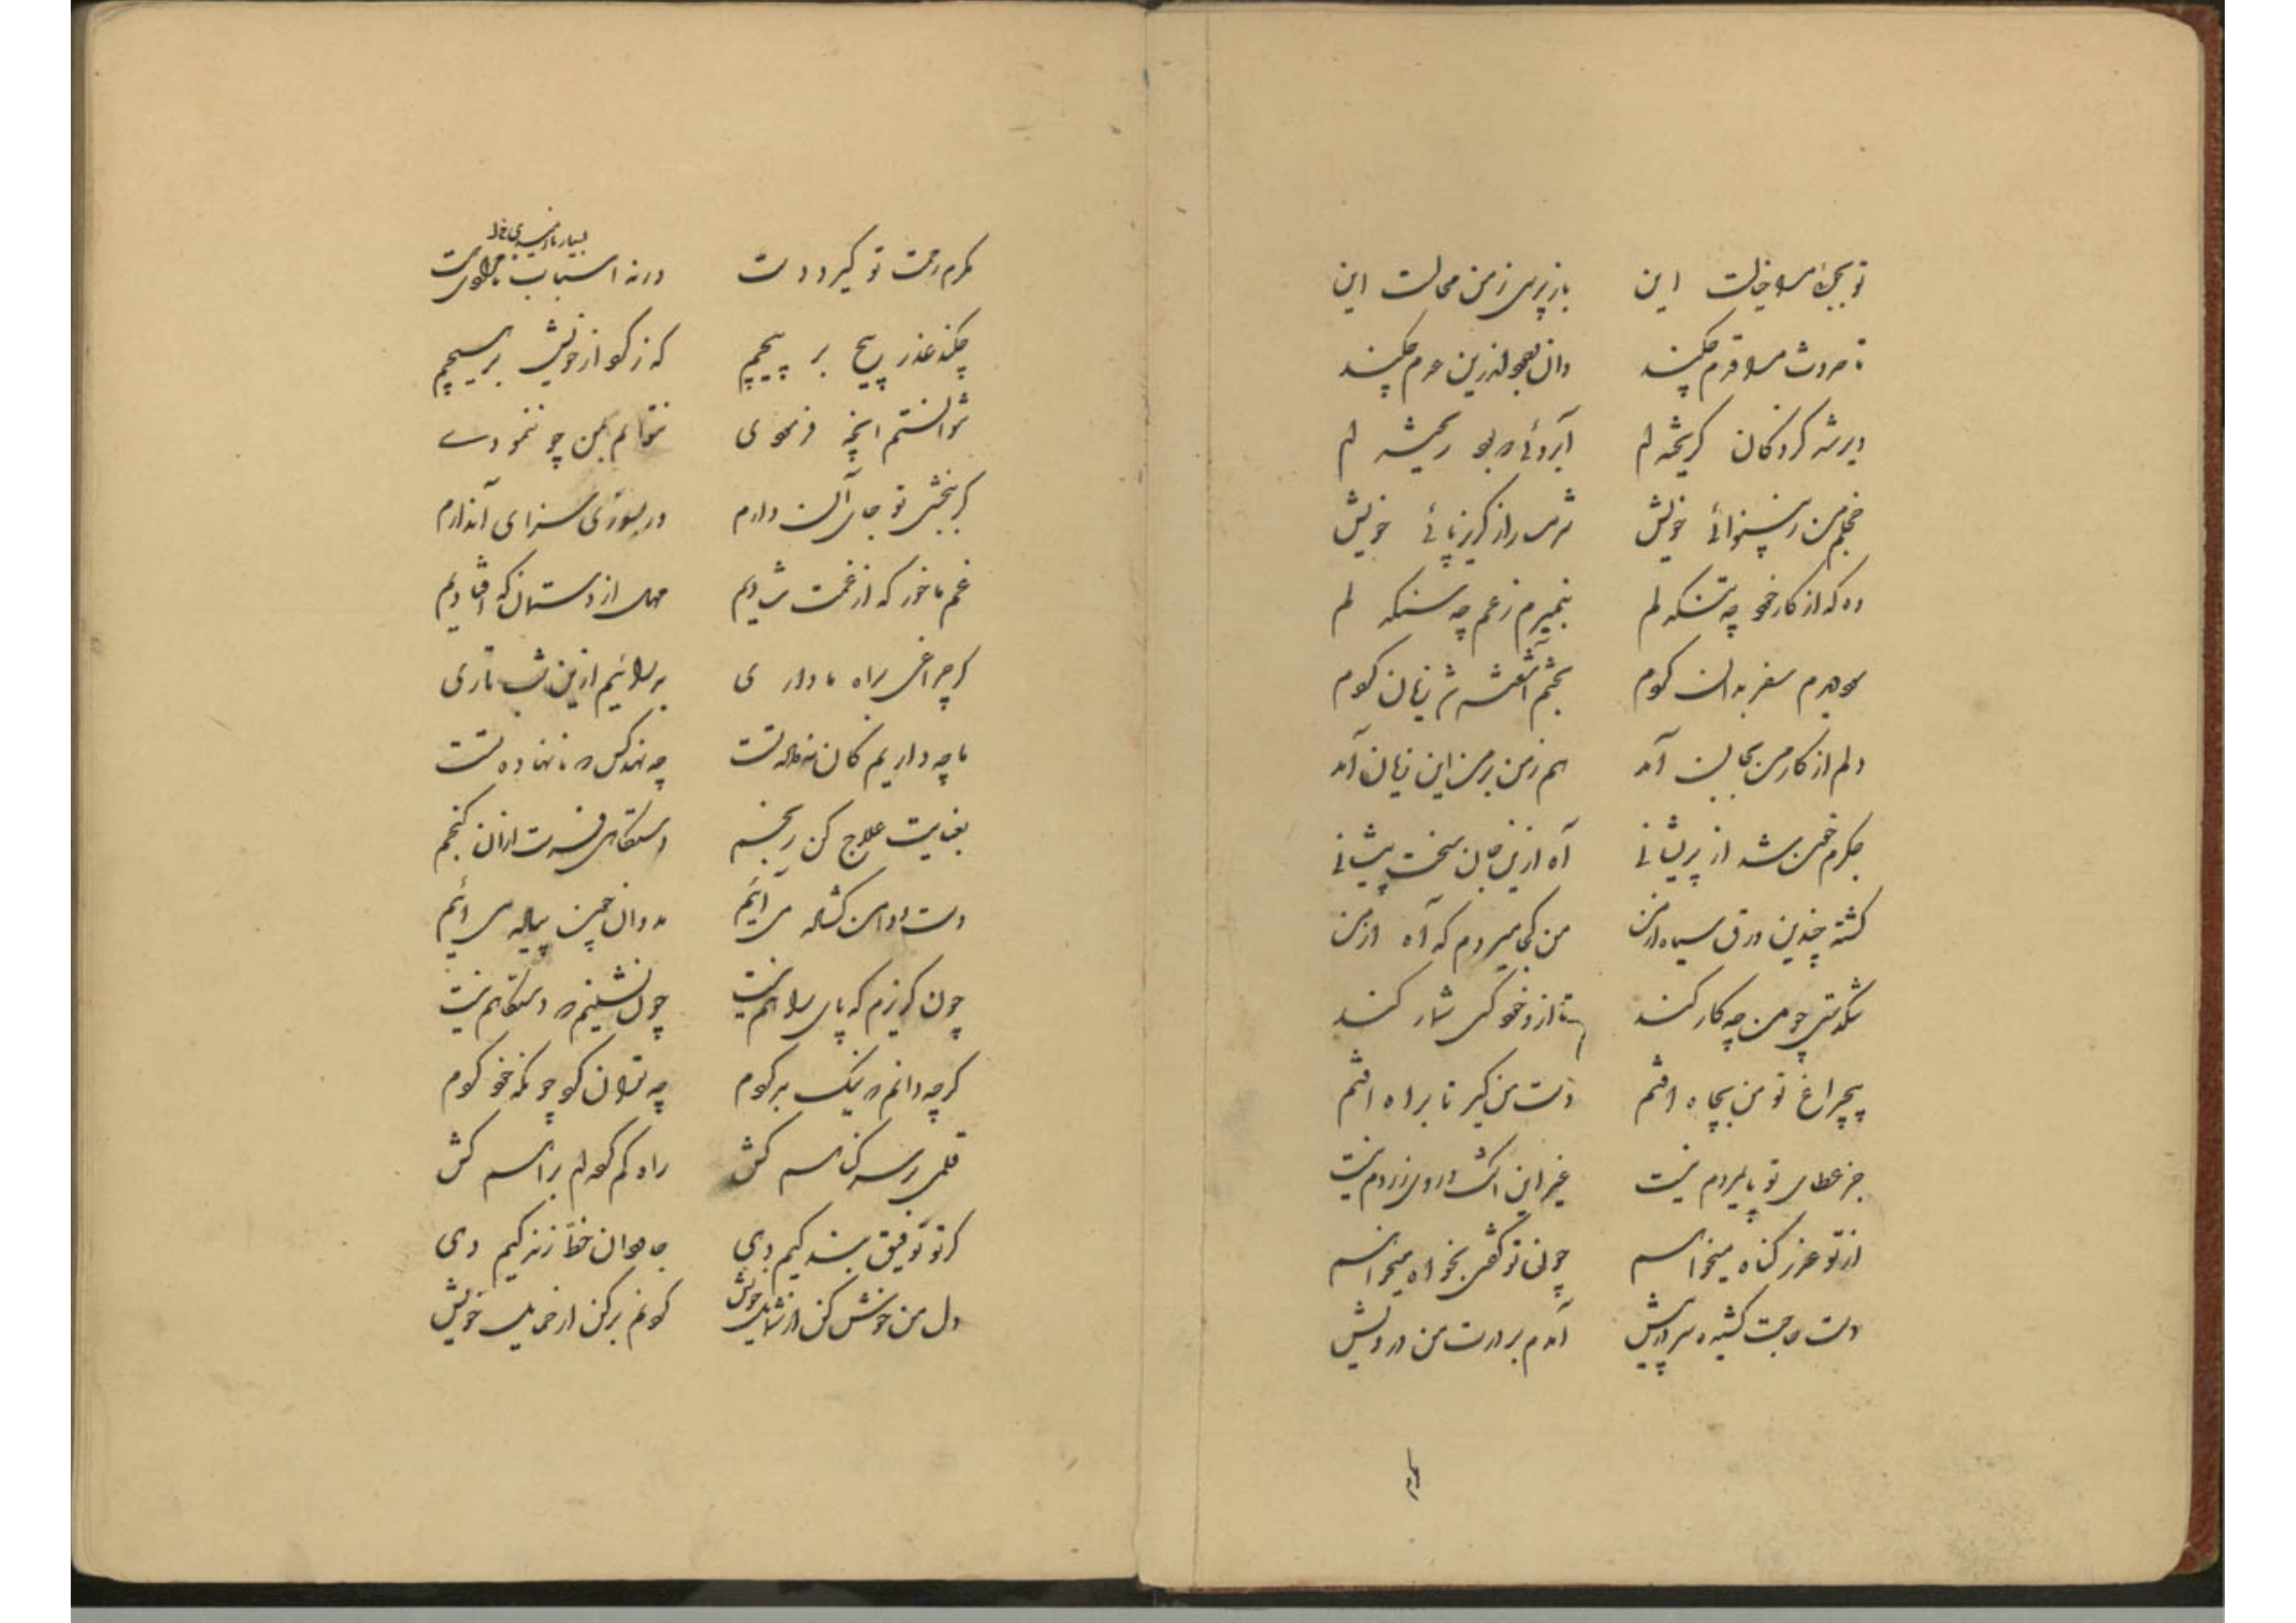 تو ببخشی مرا خیالست این بازپرسی ز من محالست این
دیر شد کز دکان گریخته ام آبروئی که بود ریخته ام
خجلم من ز بینوائی خویش شرمسار از گریزپائی خویش
وه که از کار خود چه تنگدلم بنمیرم ز غم چه سنگدلم
سفر بد آن کردم زیان کردم
دلم از کار من بجان آمد هم ز من بر من این زیان آمد
جگرم خون شد از پریشانی آه ازین جان سخت پیشانی
گشته چندین ورق سیاه از من من کجا میروم که آه از من
تنگدستی چو من چه کار کند تا ازو خود کسی شمار کند
بیچراغ تو من بچاه افتم دست من گیر تا براه افتم
جز عطای تو پایمردم نیست غیر ازین اشک و روی زردم نیست
از تو عذر گناه میخواهم چون تو گفتی بخواه میخواهم
دست حاجت کشیده سر در پیش آمدم بر درت من درویش
گرم رحمت تو گیرد دست ورنه اسباب
چکند عذر پیچ بر پیچم که ز کردار خویش بر هیچم
نتوانستم آنچه فرمودی نتوانم بمن چو ننمودی
گر ببخشی تو جای آن دارم ور بسوزی سزای آن دارم
غم ما خور که از غمت شادیم مهل از دستمان که افتادیم
گر چراغی براه ما داری برهانیم ازین شب تاری
ما چه داریم کان نداده تست چه نهد کس که نانهاده تست
بعنایت علاج کن رنجم دستگاهی فرست از آن گنجم
دست و دامن گشاده می آئیم مدوان چون پیاده می آئیم
چون گریزم که پای راهم نیست چون نشینم که دستگاهم نیست
گرچه دانم که نیک بد کردم چه توان کرد چونکه خود کردم
قلمی بر سر گناهم کش راه گم کرده ام براهم کش
گر تو توفیق بندگیم دهی جاودان خط زندگیم دهی
دل من خوش کن از شمایل خویش گردنم پر کن از حمایل خویش